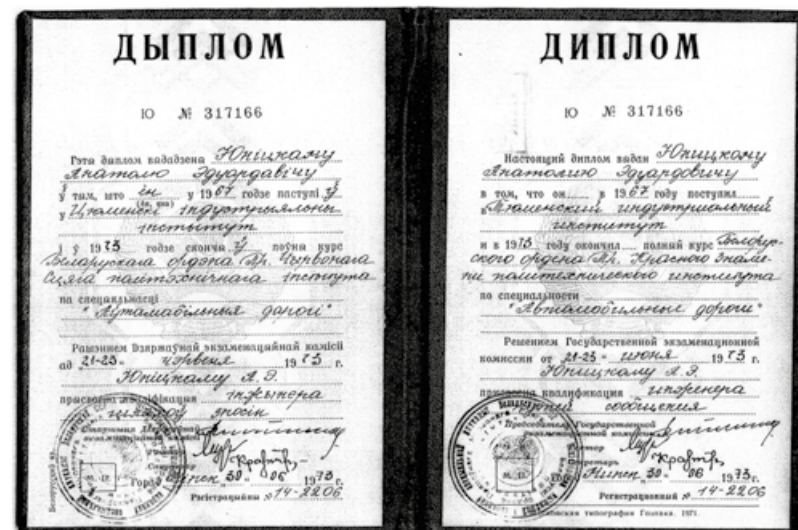 ДЫПЛОМ
Ю № 317166
Гэты дыплом выдадзены Юніцкаму
Анатолю Эдуардавічу
ў тым, што ён у 1967 годзе паступіў
у Цюменскі індустрыяльны
інстытут
і ў 1973 годзе скончыў поўны курс
Беларускага ордэна Пр. Чырвонага
Сцяга палітэхнічнага інстытута
па спецыяльнасці
"Аўтамабільныя дарогі"
Рашэннем Дзяржаўнай экзаменацыйнай камісіі
ад "21-23" чэрвеня 1973 г.
Юніцкаму А.Э.
прысвоена кваліфікацыя інжынера
шляхоў зносін
Старшыня Дзяржаўнай
экзаменацыйнай камісіі
Рэктар
Сакратар
Горад Мінск 30 " 06 1973 г.
Рэгістрацыйны № 14-2206
ДИПЛОМ
Ю № 317166
Настоящий диплом выдан Юницкому
Анатолию Эдуардовичу
в том, что он в 1967 году поступил
в Тюменский индустриальный
институт
и в 1973 году окончил полный курс Белорус-
ского ордена Тр. Красного Знаме-
ни политехнического института
по специальности
"Автомобильные дороги"
Решением Государственной экзаменационной
комиссии от "21-23" июня 1973 г.
Юницкому А.Э.
присвоена квалификация инженера
путей сообщения
Председатель Государственной
экзаменационной комиссии
Ректор
Секретарь
Город Минск 30 " 06 1973 г.
Регистрационный № 14-2206
Московская типография Гознака. 1971.